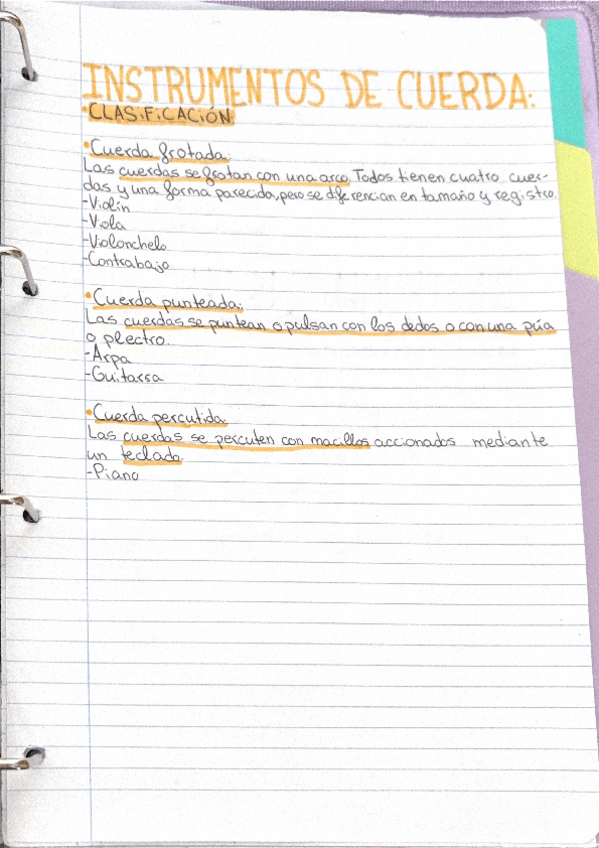 INSTRUMENTOS DE CUERDA:
•CLASIFICACIÓN
•Cuerda frotada:
Las cuerdas se frotan con una arco. Todos tienen cuatro cuer-
das y una forma parecida, pero se diferencian en tamaño y registro.
-Violín
-Viola
-Violonchelo
-Contrabajo
•Cuerda punteada:
Las cuerdas se puntean o pulsan con los dedos o con una púa
o plectro.
-Arpa
-Guitarra
•Cuerda percutida:
Las cuerdas se percuten con macillos accionados mediante
un teclado.
-Piano